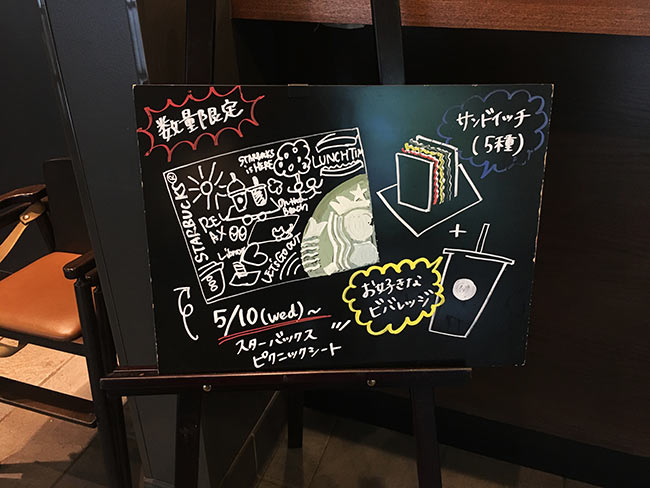 数量限定
STARBUCKS®
STARBUCKS
IS HERE
LUNCH TIME
RELAX
on the
Beach
LET'S GO OUT
5/10(wed)~
スターバックス
ピクニックシート
サンドイッチ
(5種)
+
お好きな
ビバレッジ